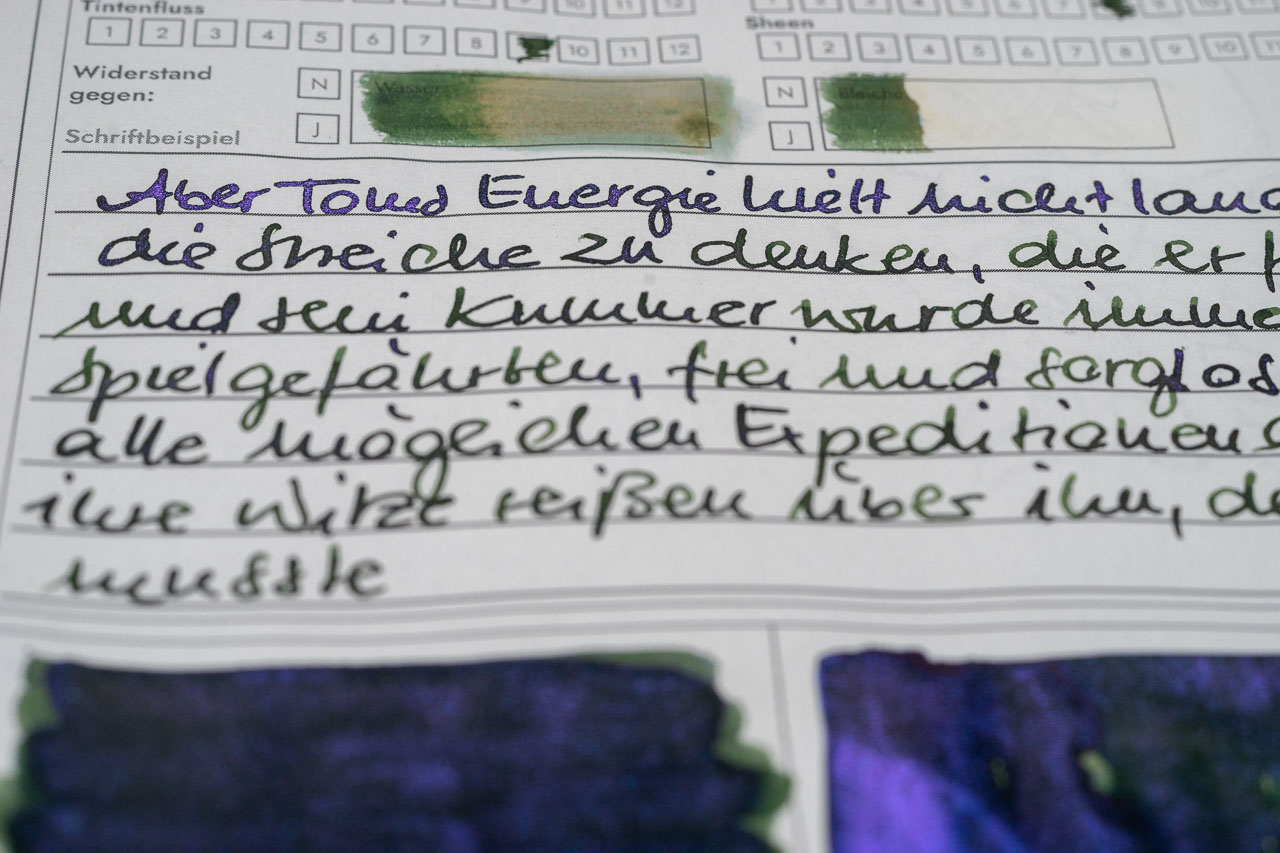 Tintenfluss
1 2 3 4 5 6 7 8 10 11 12
Sheen
1 2 3 4 5 6 7 8 9 10 11
Widerstand
gegen:
N Wasser
J
N Bleiche
J
Schriftbeispiel
Aber Toms Energie hielt nicht lang
die Streiche zu denken, die er
und sein Kummer wurde imme
Spielgefährten, frei und sorglos
alle möglichen Expeditionen
ihre Witze reißen über ihn, de
musste